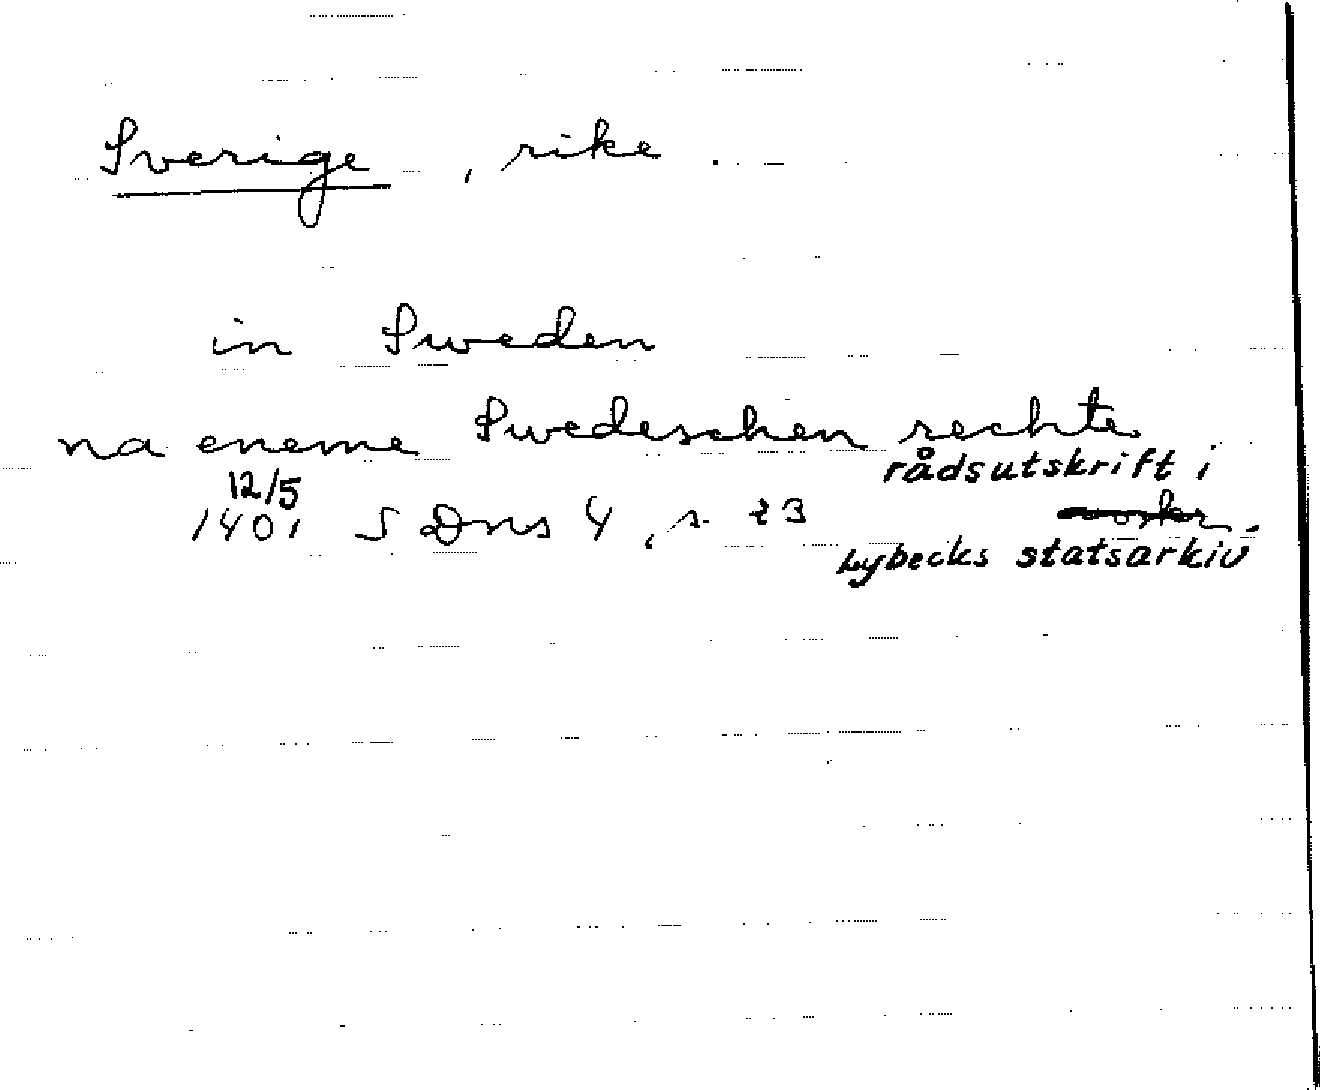 Sverige, rike.
in Sweden
na eneme Swedeschen rechte
rådsutskrift i
12/5
1401 S Dns 4, s. 23
Lybecks statsarkiv